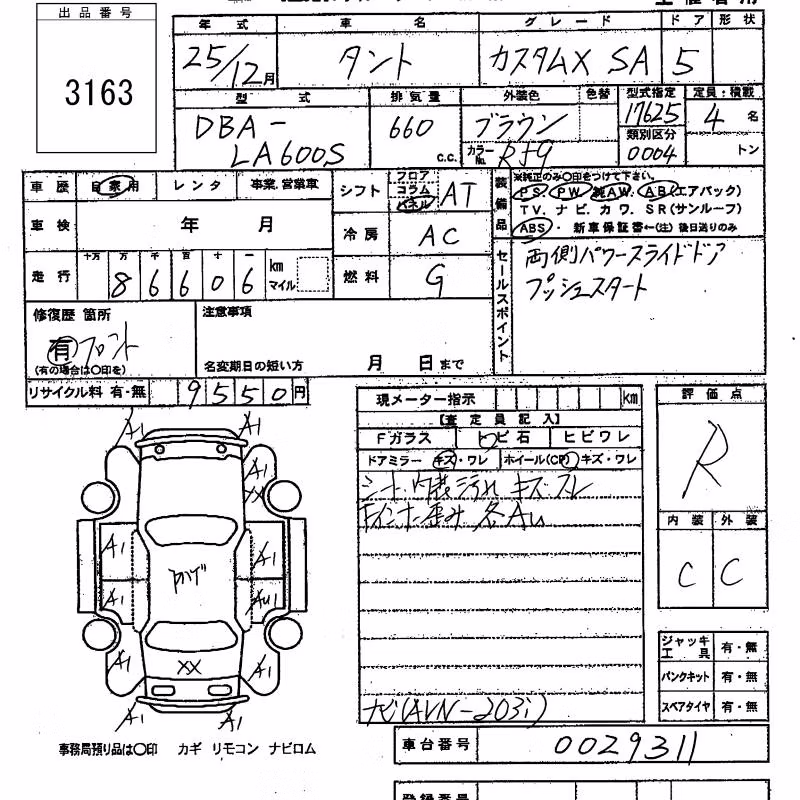 出品番号
3163
年式 車名 グレード ドア 形状
25/12月 タント カスタムX SA 5
型式 排気量 外装色 色替 型式指定 定員:積載
DBA-LA600S 660 c.c. ブラウン 17625 4名
カラーNo. R59 類別区分 0004 トン
車歴 自家用 レンタ 事業.営業車
シフト フロア コラム パネル AT
装備品 ※純正のみ〇印をつけて下さい。
PS PW 純AW. AB(エアバック)
TV. ナビ. カワ. SR(サンルーフ)
ABS・ 新車保証書←(注) 後日送りのみ
車検 年 月
冷房 AC
走行 十万 万 千 百 十 一
86606 km マイル
燃料 G
セールスポイント
両側パワースライドドア
プッシュスタート
修復歴 箇所
有 フロント
(有の場合は〇印を)
注意事項
名変期日の短い方 月 日まで
リサイクル料 有・無 9550円
現メーター指示 km
【査定員記入】
Fガラス トビ石 ヒビワレ
ドアミラー キズ・ワレ ホイール(CP) キズ・ワレ
シート・内装汚れ キズ スレ
歪み 各AU
ナビ(AVN-203i)
評価点
R
内装 外装
C C
ジャッキ工具 有・無
パンクキット 有・無
スペアタイヤ 有・無
A1 A1
A1
XX
A1 A1
A1 AU1
ハゲ
A1 XX A1
A1 A1
事務局預り品は〇印 カギ リモコン ナビロム
車台番号 0029311
登録番号